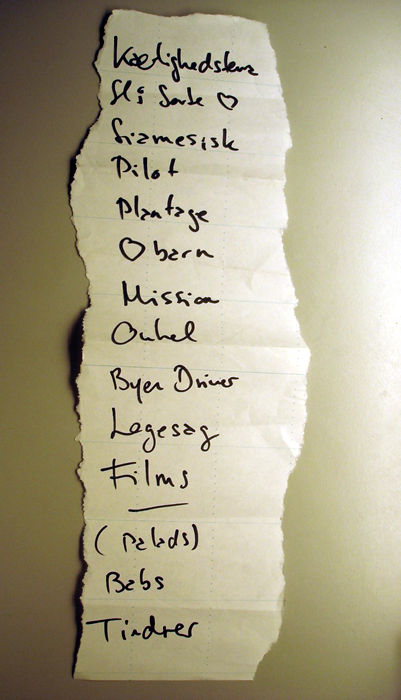 Kærlighedstema
Slå Sorte ♡
Siamesisk
Pilot
Plantage
♡ barn
Mission
Onkel
Byen Driver
Legesag
Films
(Palads)
Babs
Tindrer